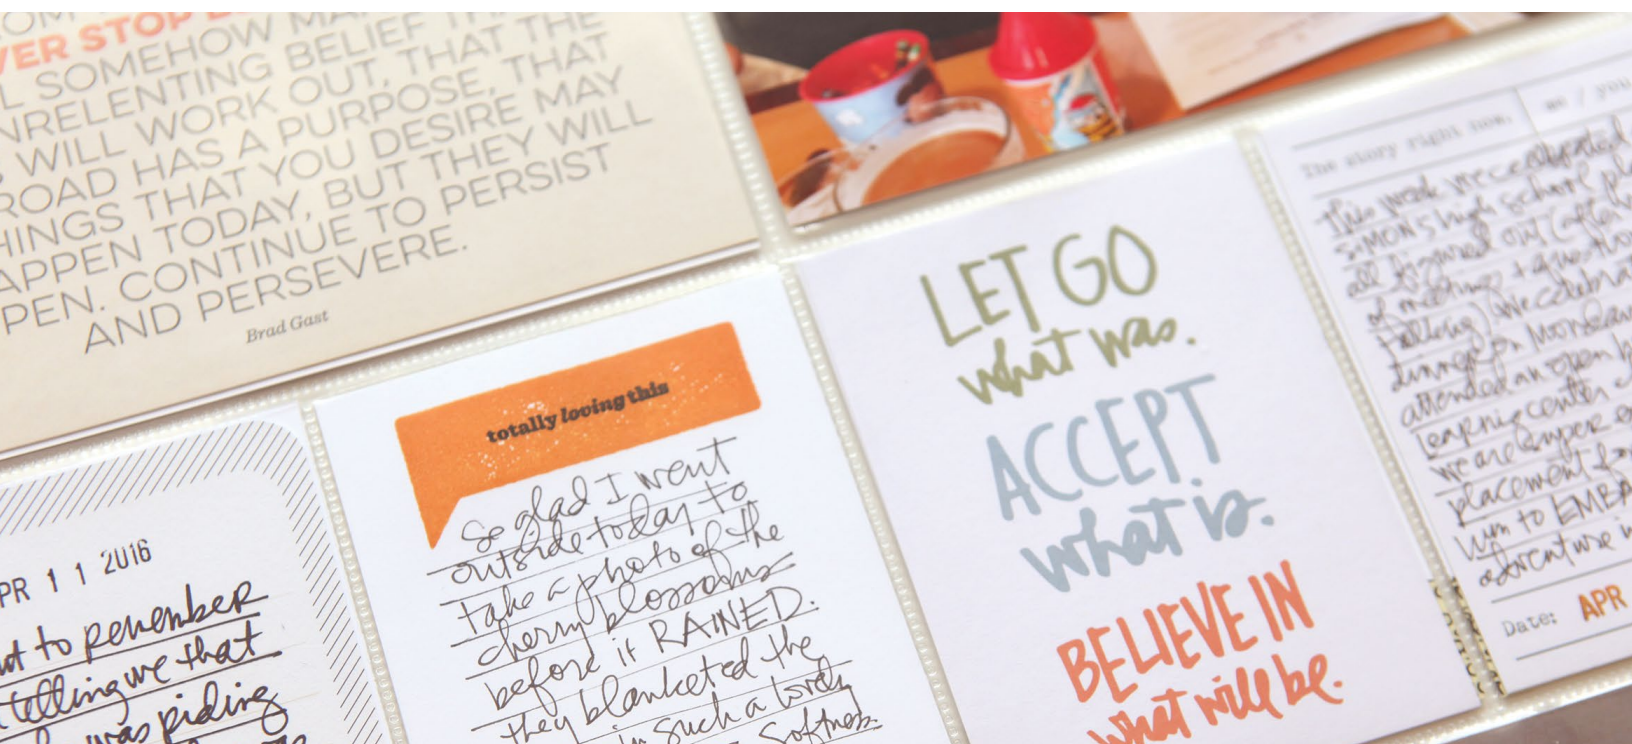 VER STOP
SOMEHOW
NRELENTING BELIEF
WILL WORK OUT, THAT THE
ROAD HAS A PURPOSE, THAT
HINGS THAT YOU DESIRE MAY
APPEN TODAY, BUT THEY WILL
PEN. CONTINUE TO PERSIST
AND PERSEVERE.
Brad Gast
PR 1 1 2016
to remember
telling me that
was riding
totally loving this
So glad I went
outside today to
take a photo of the
cherry blossoms
before it RAINED.
they blanketed the
in such a lovely
softness.
LET GO
what was.
ACCEPT
what is.
BELIEVE IN
what will be.
The story right now.
me / you
This week we celebrated
SIMON'S high school
all figured out (after
of meetings + questions
talking) we celebrated
dinner for
attended an open
learning center
we are super
placement for
him to
adventure in
Date: APR